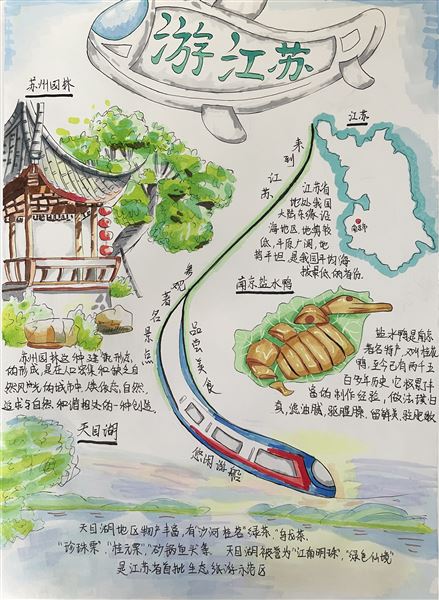 游江苏
苏州园林
江苏
来到江苏
江苏省
地处我国
大陆东部沿
海地区,地势较
低,平原广阔,地
势平坦,是我国平均海
拔最低的省份。
南京
参观著名景点
品尝美食
悠闲游船
南京盐水鸭
盐水鸭是南京
著名特产,又叫桂花
鸭,至今已有两千五
百多年历史,它积累丰
富的制作经验,做法
苏州园林这种建筑形态
的形成,是在人口密集和缺乏自
然风光的城市中,依恋自然,
追求与自然和谐相处的一种创造
天目湖
天目湖地区物产丰富,有"沙河桂茗"绿茶、"乌龙茶、
"珍珠栗"、"桂元栗"、"砂锅鱼头等。天目湖被誉为"江南明珠","绿色仙境"
是江苏省首批生态旅游示范区